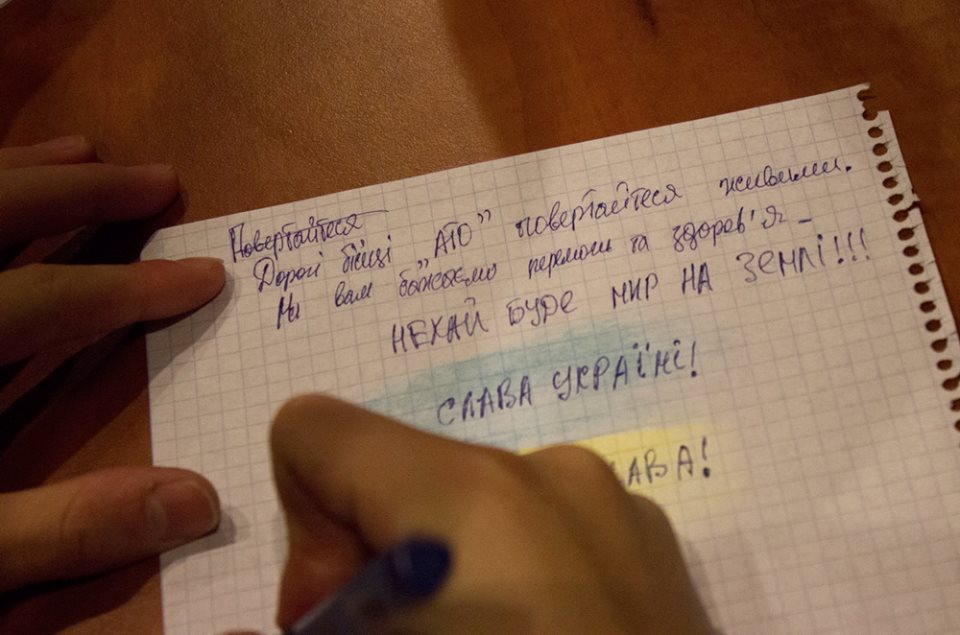 Повертайтеся
Дорогі бійці „АТО” повертайтеся живими.
Ми вам бажаємо перемоги та здоров'я –
НЕХАЙ БУДЕ МИР НА ЗЕМЛІ!!!
СЛАВА УКРАЇНІ!
ЛАВА!